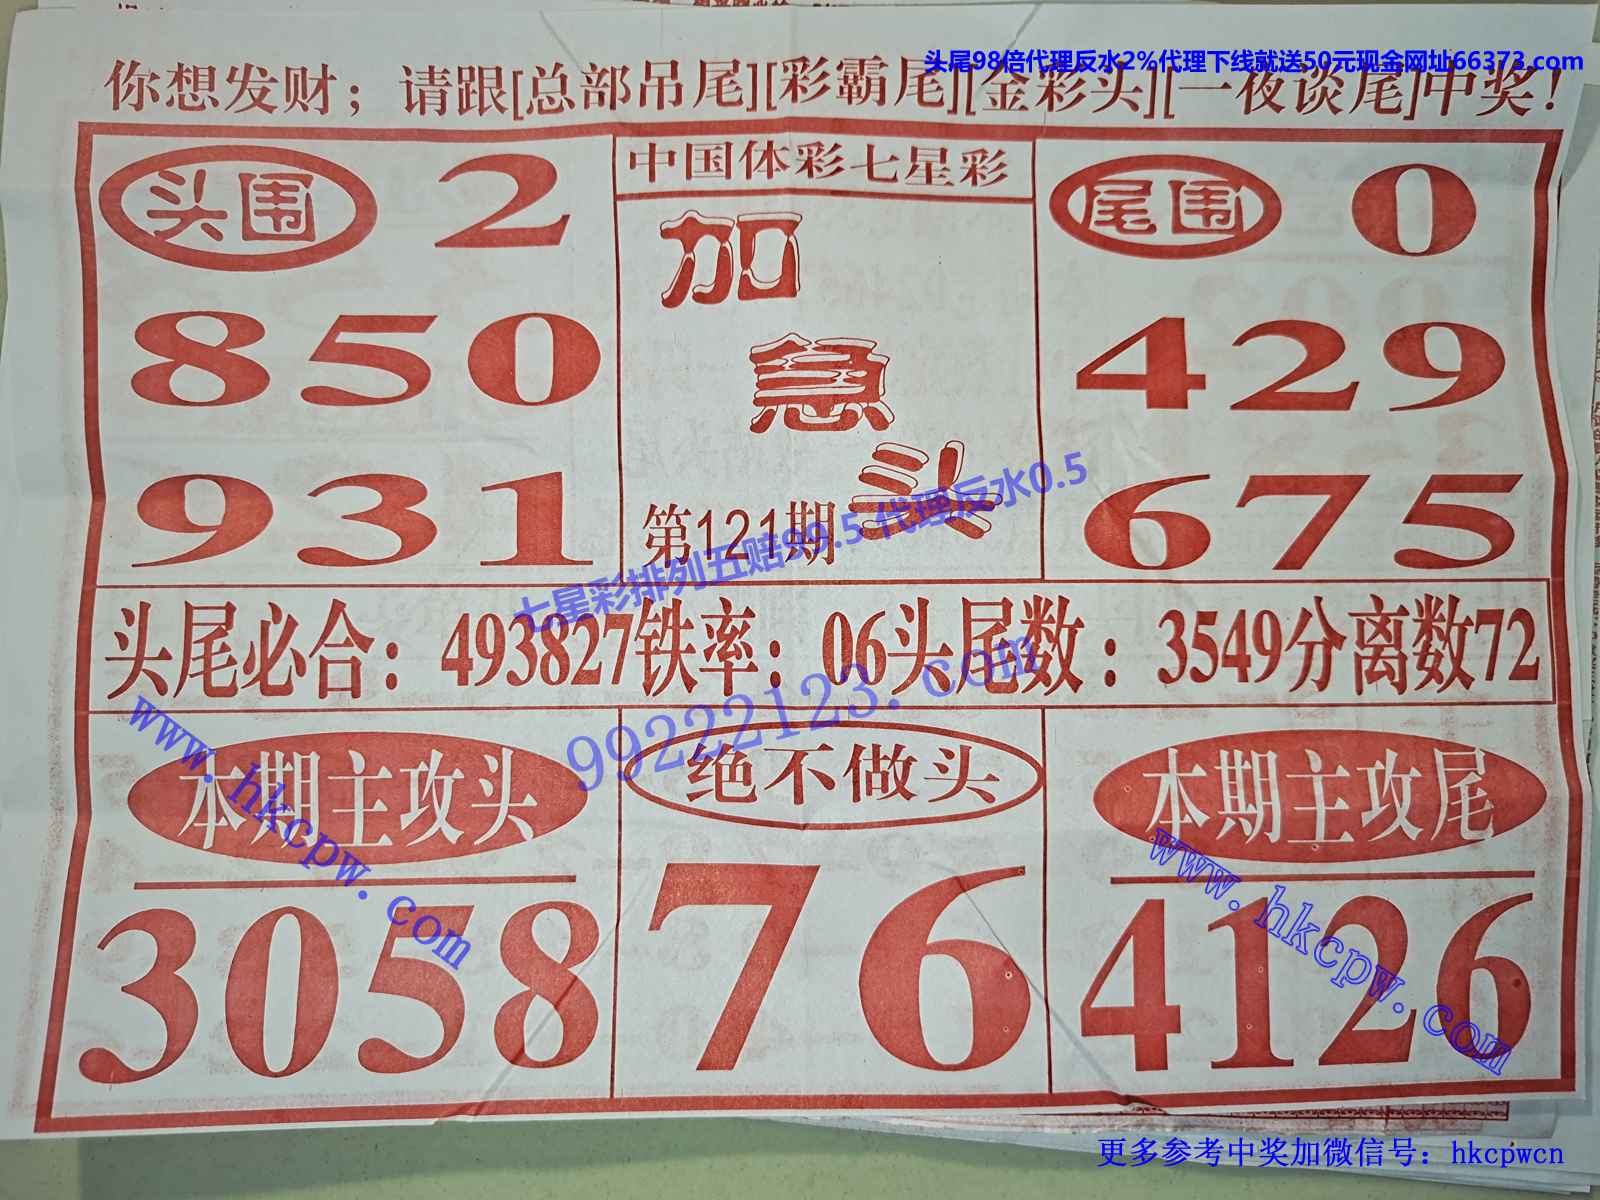 头尾98倍代理反水2%代理下线就送50元现金网址66373.com
你想发财；请跟[总部吊尾][彩霸尾][金彩头][一夜谈尾]中奖！
头围 2
850
931
中国体彩七星彩
加
急
头
第121期
尾围 0
429
675
七星彩排列五赔99.5 代理反水0.5
头尾必合：493827铁率：06头尾数：3549分离数72
99222123.com
www.hkcpw.com
本期主攻头
3058
绝不做头
76
本期主攻尾
4126
www.hkcpw.com
更多参考中奖加微信号：hkcpwcn